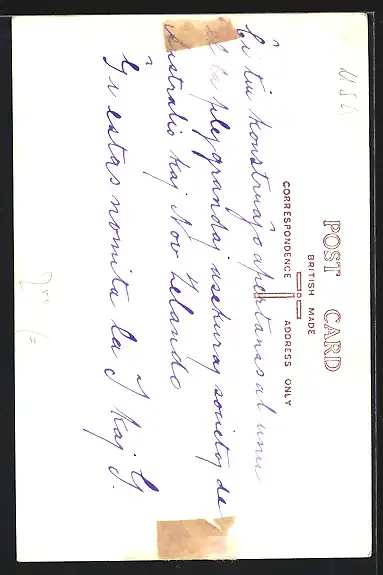 U.S.A
POST CARD
BRITISH MADE
CORRESPONDENCE
ADDRESS ONLY
Ĉi tiu konstruaĵo apartenas al unu
el la plej grandaj asekuraj societoj de
Australio kaj Nov Zelando
Ĝi estas nomita la T kaj G.